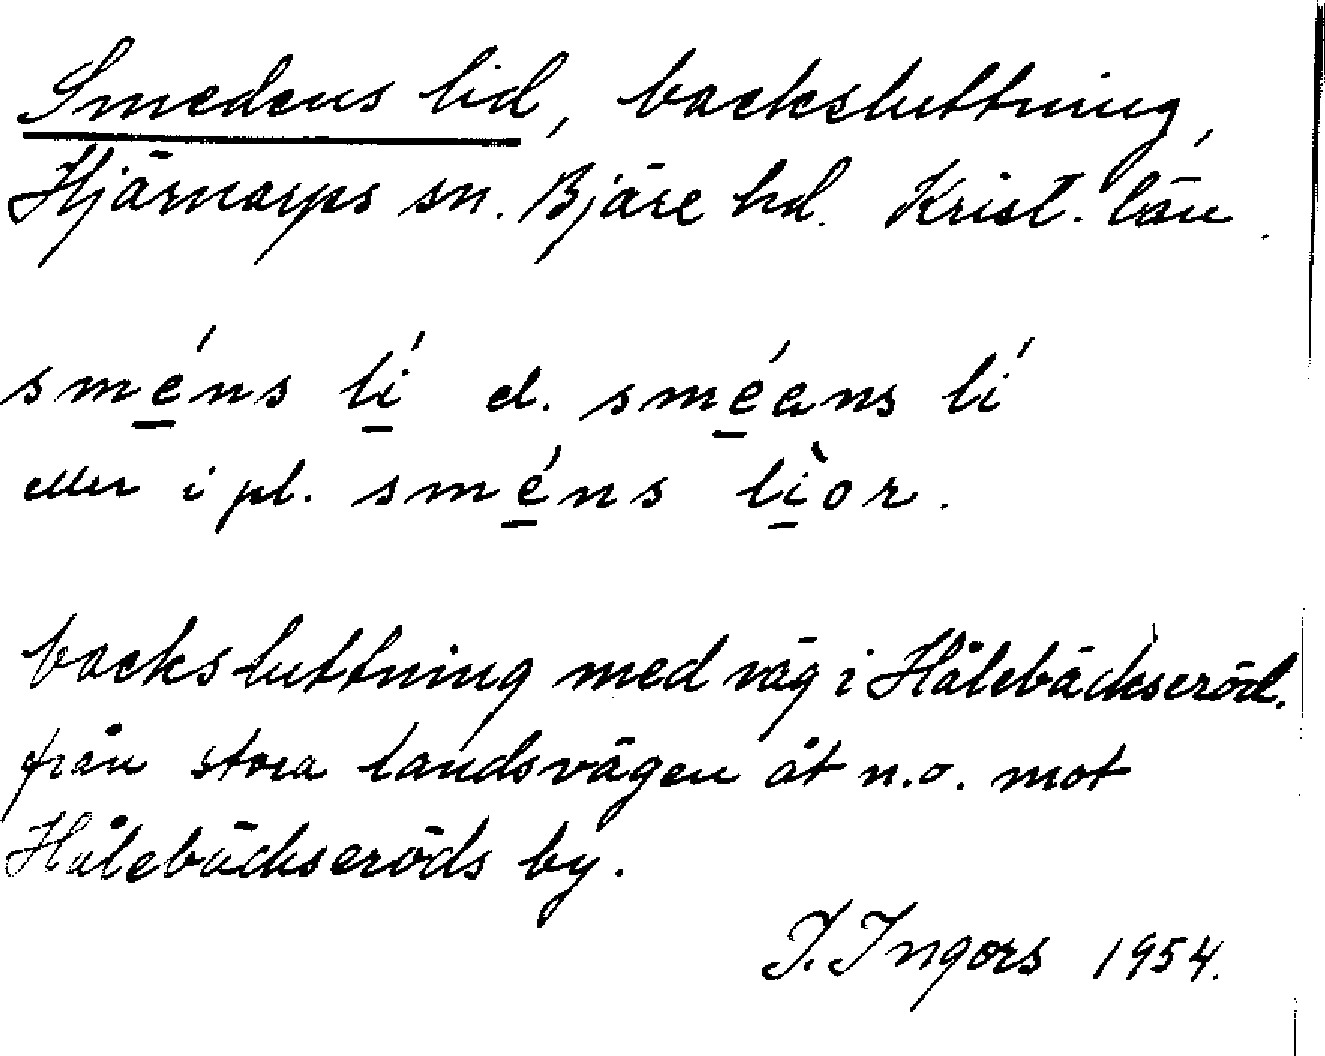 Smedens lid, backsluttning,
Hjärnarps sn. Bjäre hd. Krist. län.
smé̲ns lí̲ el. smé̲ans lí
eller i pl. smé̲ns lì̲or.
backsluttning med väg i Hålebäckseröd.
från stora landsvägen åt n.o. mot
Hålebäckseröds by.
I. Ingers 1954.